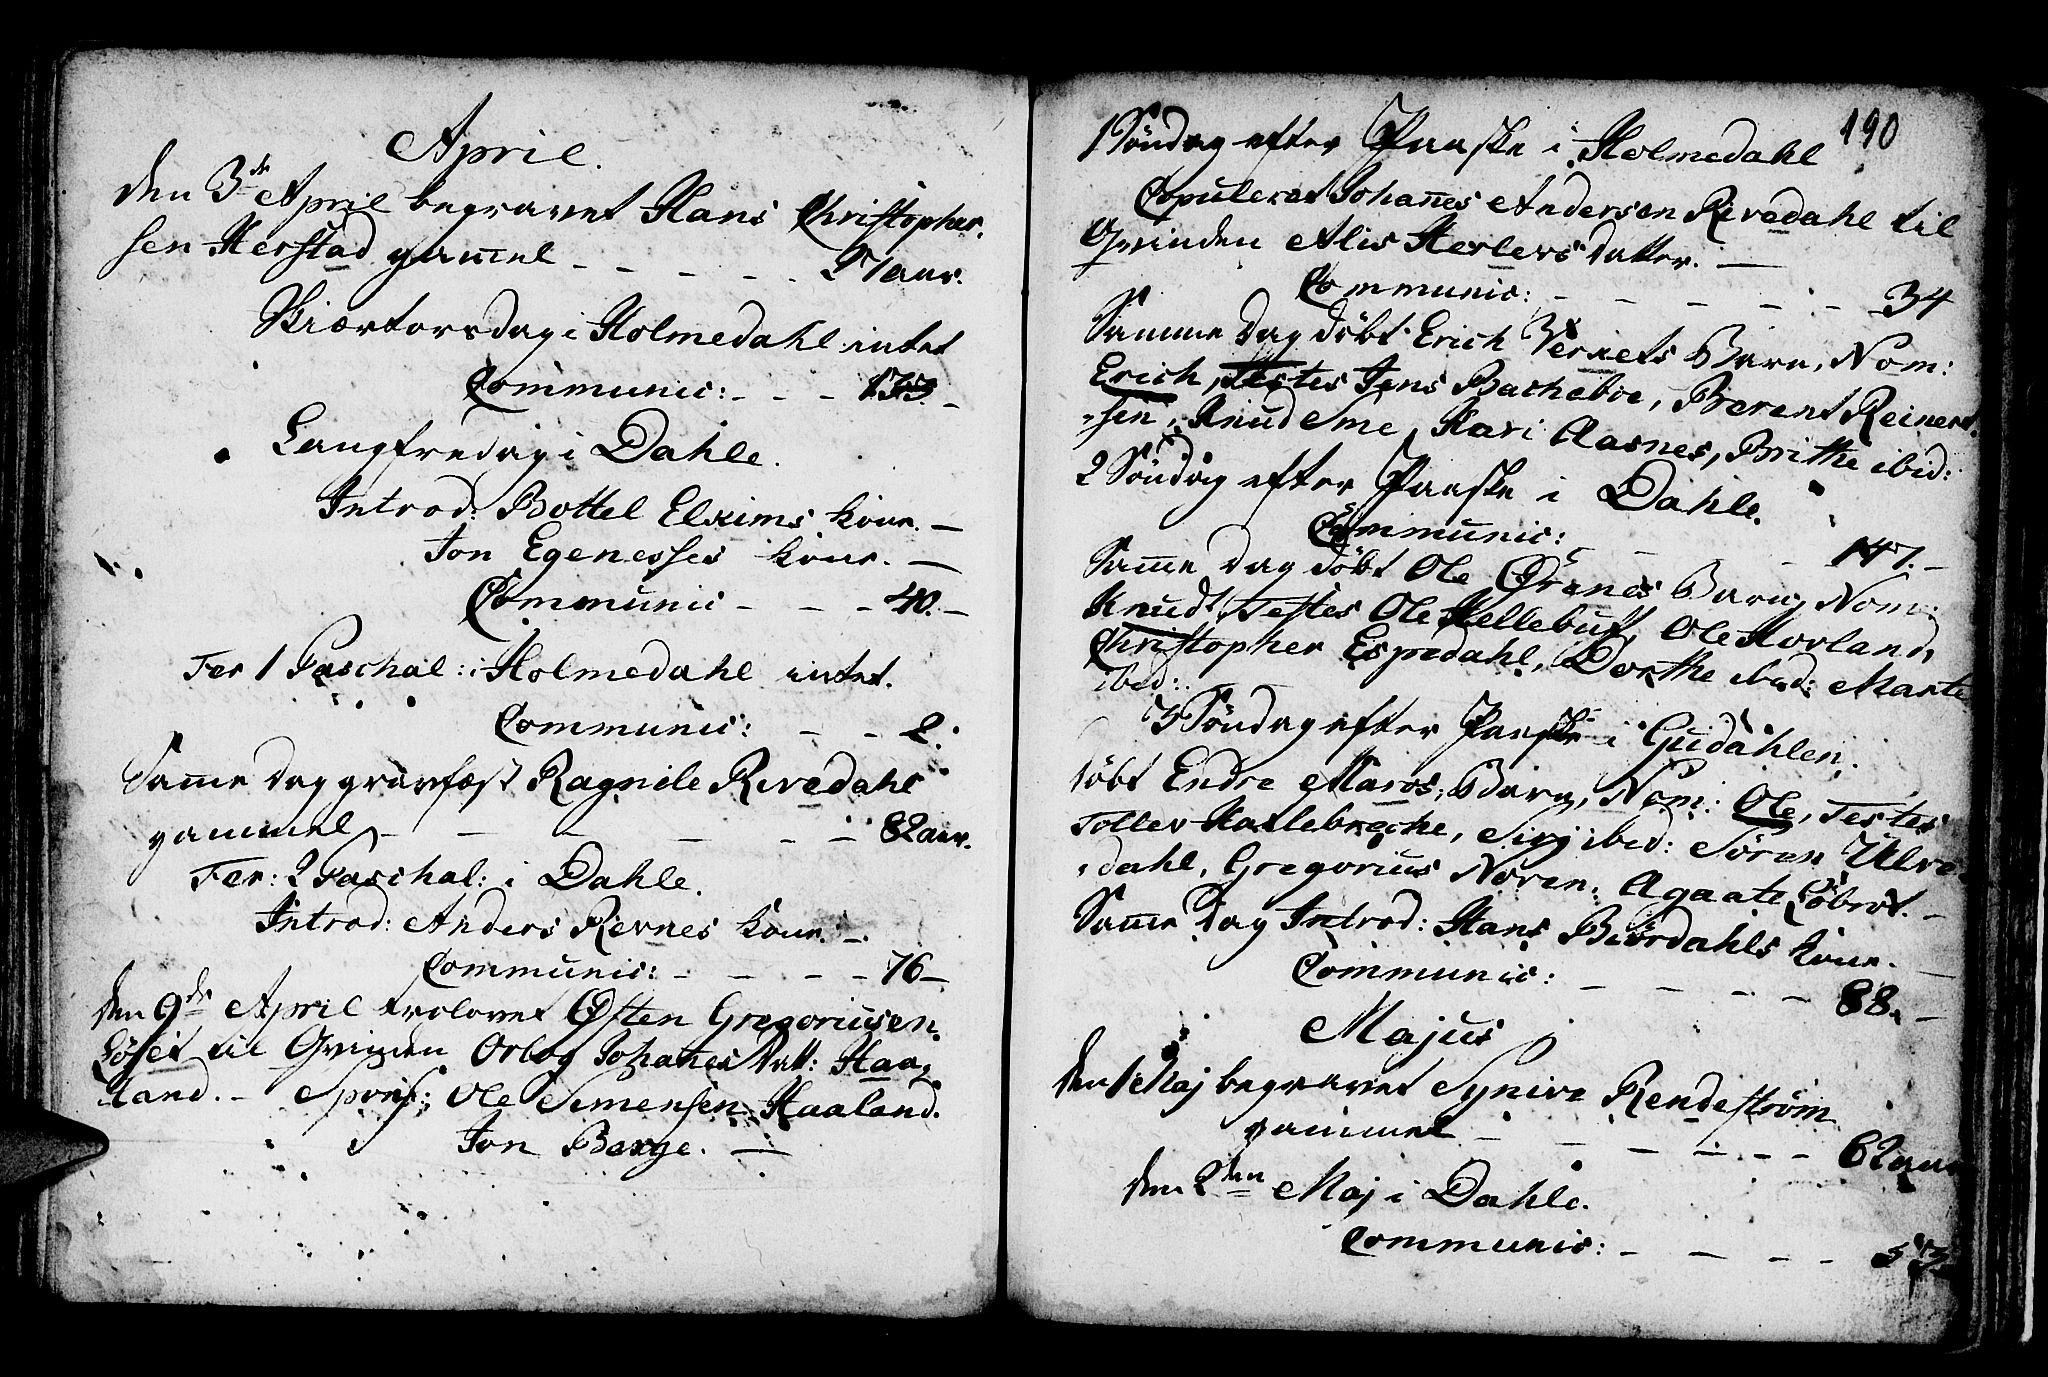 April.
den 3de April begravet Hans Christopher-
sen Herstad gammel - - - - - 27 aar.
Skiærtorsdag i Holmedahl intet
Communic: - - - 133. -
Langfredag i Dahle.
Introd: Bottel Elkims kone. -
Jon Egenesses kone. -
Communic - - - 40. -
Fer 1 Paschal: i Holmedahl intet.
Communic: - - 2.
Same dag gravfæst Ragnile Rivedahl
gammel - - - - - 82 aar.
Fer: 2 Paschal: i Dahle.
Introd: Anders Revnes kone. -
Communic: - - - - 76 -
den 9de April trolovet Østen Gregoriusen
Løset til Qvinden Orlog Johanes Datt: Haa-
land. - Spons: Ole Simensen Haaland.
Jon Berge. -
190
1 Søndag efter Paaske i Holmedahl
Copuleret Johanes Andersen Rivedahl til
Qvinden Alis Herlevs datter. -
Communic: - - - - - 34
Samme dag døbt Erich Verkets Barn, Nom:
Erich, Testes Jens Bacheboe, Berent Reinert-
sen, Knud Sme, Kari Aasnes, Brithe ibid:
2 Søndag efter Paaske i Dahle.
Communic: - - - 147. -
Same dag døbt Ole Ørenes Barn, Nom:
Knudt, Testes Ole Hellebust, Ole Hovland,
Christopher Espedahl, Dorthe ibid: Marte
ibid:
3 Søndag efter Paaske i Gudahlen.
døbt Endre Maros, Barn, Nom: Ole, Testes
Toller Kallebreche, Siri ibid: Søren Ulve-
dahl, Gregorius Noren, Agaate Løbrot. -
Same Dag Introd: Hans Biørdahls kone. -
Communic: - - - - 88. -
Majus
den 1 Maj begravet Synive Rendestrøm
gammel - - - - - 62 aar
den 2den Maj i Dahle.
Communic: - - - - 53